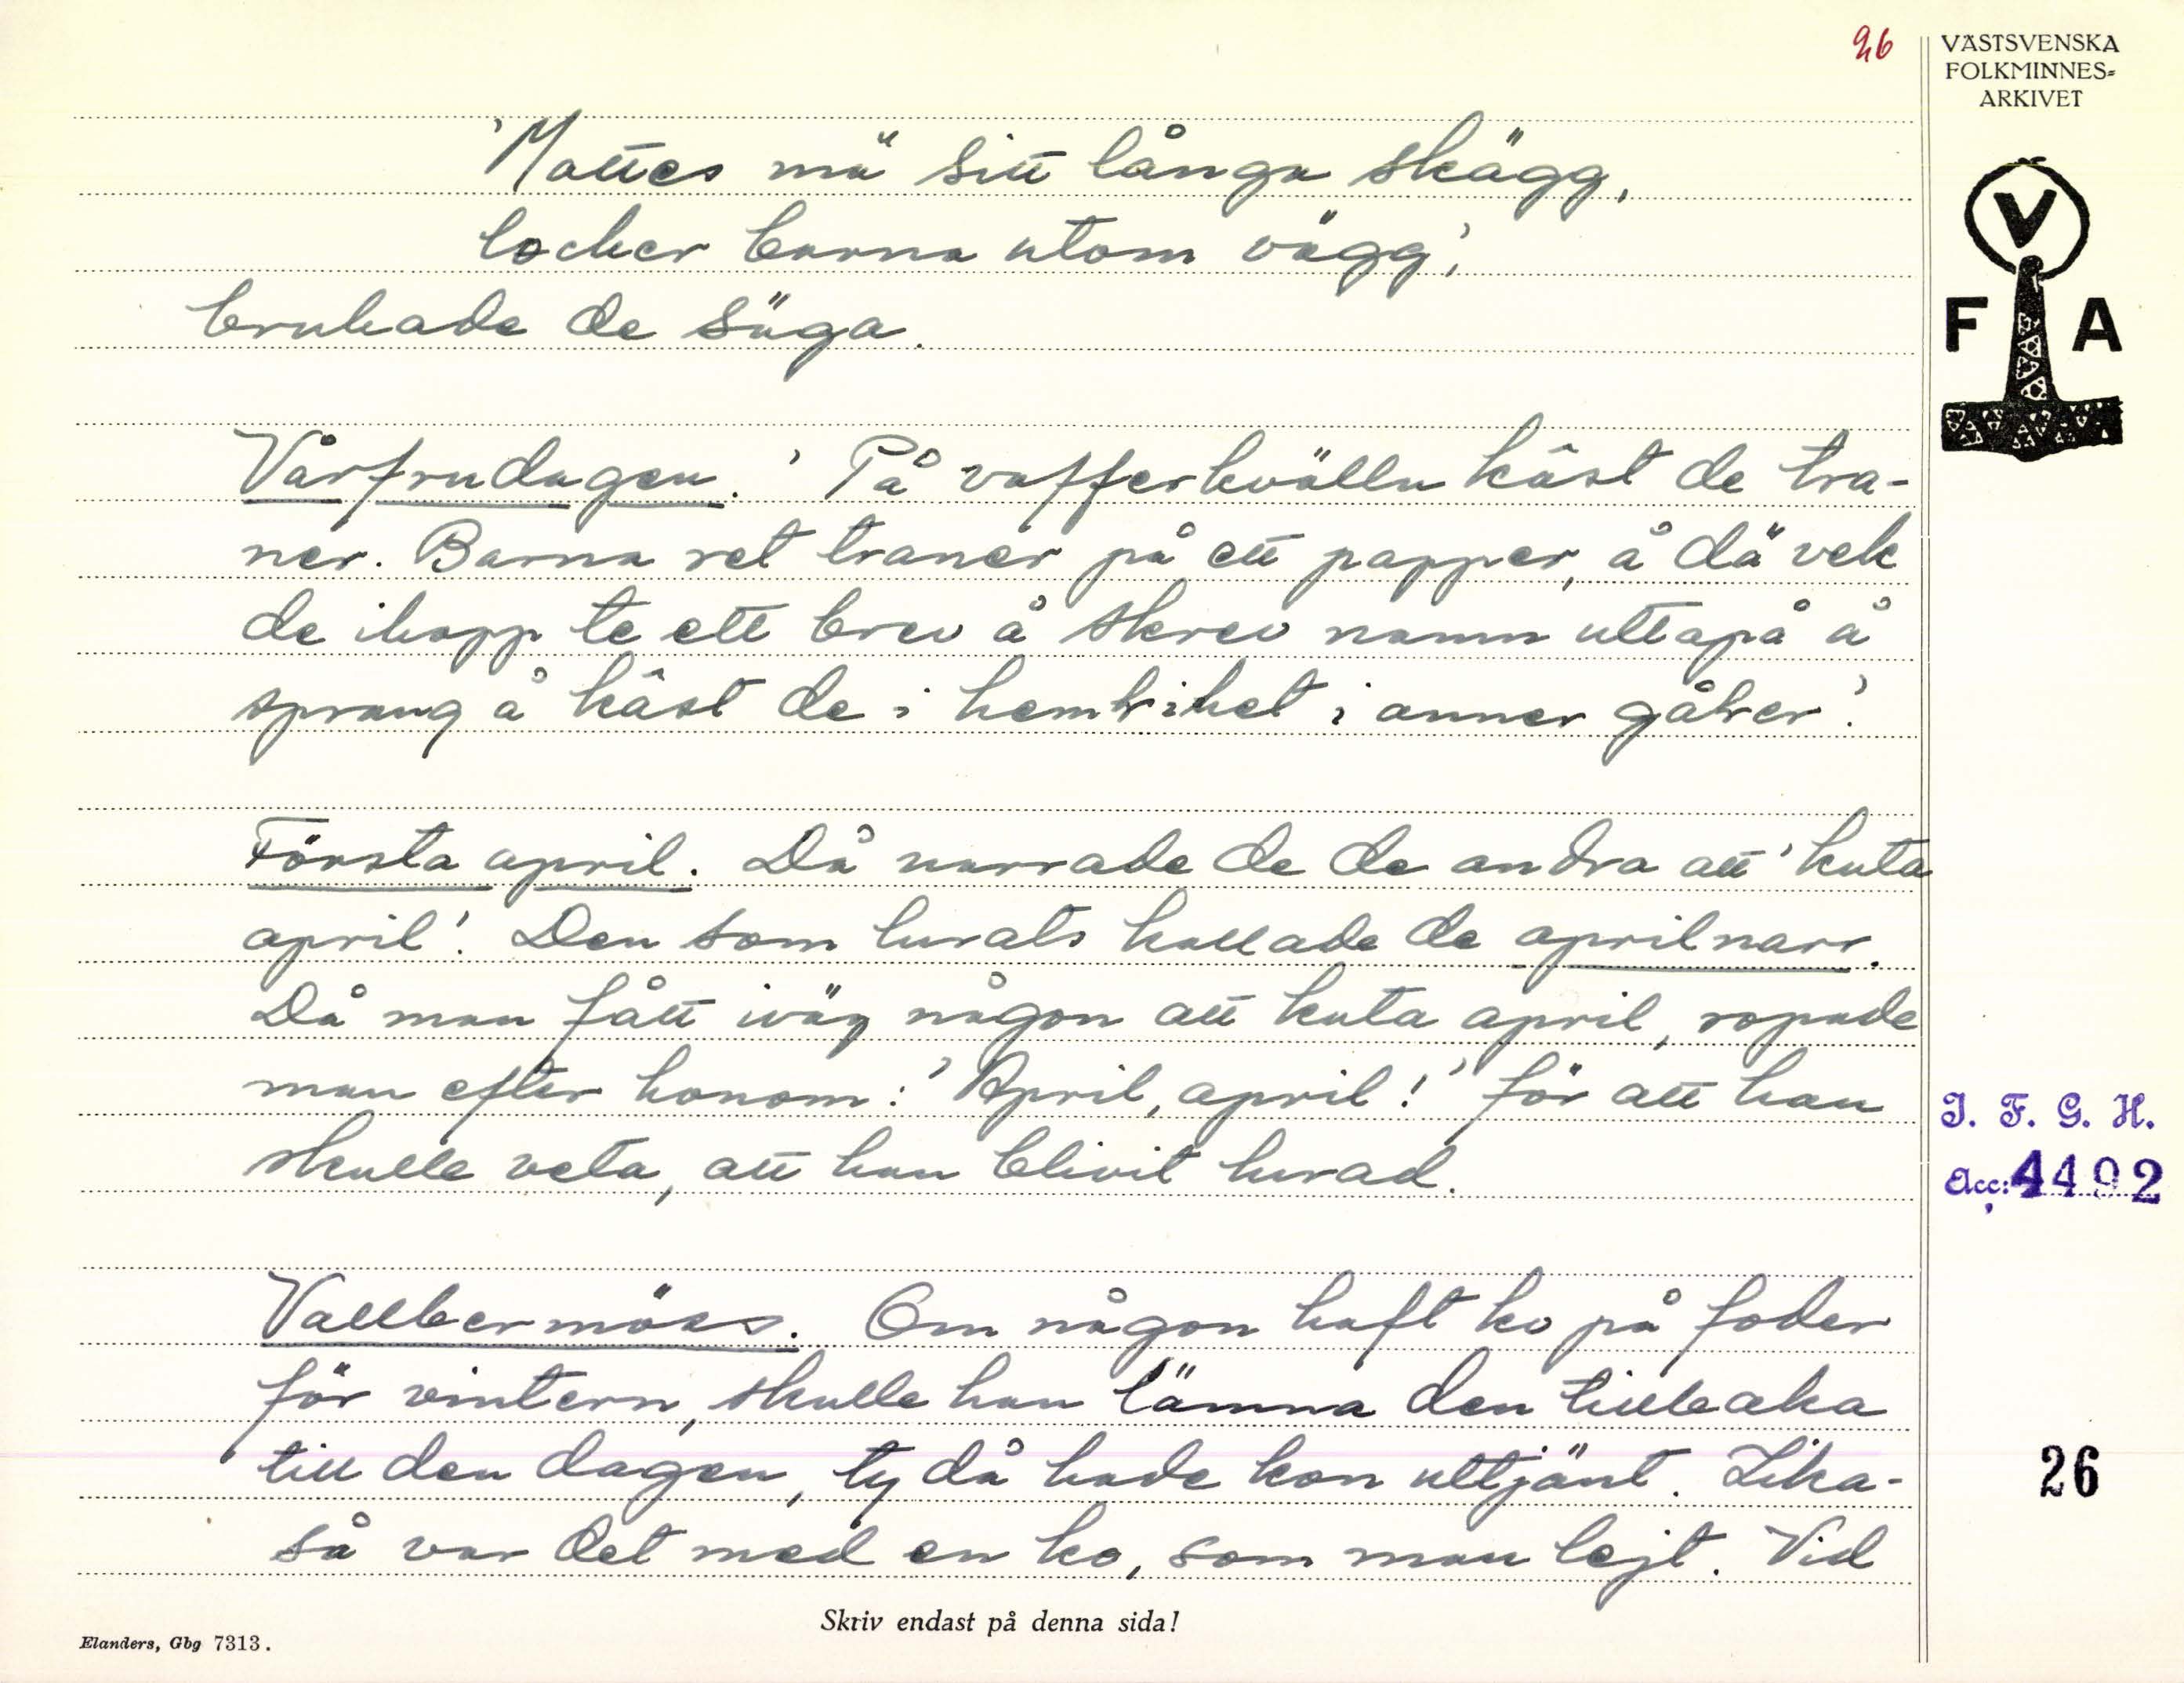 26
VÄSTSVENSKA
FOLKMINNES=
ARKIVET
V
F A
'Mattes mä sitt långa skägg,
locker barna utom vägg',
brukade de säga.
Vårfrudagen. 'På vafferkvälln kåst de tra-
ner. Barna ret traner på ett papper, å dä vek
de ihopp te ett brev å skrev namn uttapå å
sprang å kåst de i hemlihet i anner gårer'.
Första april. Då narrade de de andra att 'kuta
april'. Den som lurats kallade de aprilnarr.
Då man fått iväg någon att kuta april, ropade
man efter honom: 'April, april!' för att han
skulle veta, att han blivit lurad.
Vallbermäss. Om någon haft ko på foder
för vintern, skulle han lämna den tillbaka
till den dagen, ty då hade kon uttjänt. Lika-
så var det med en ko, som man lejt. Vid
I. F. G. H.
Acc: 4492
26
Skriv endast på denna sida!
Elanders, Gbg 7313.